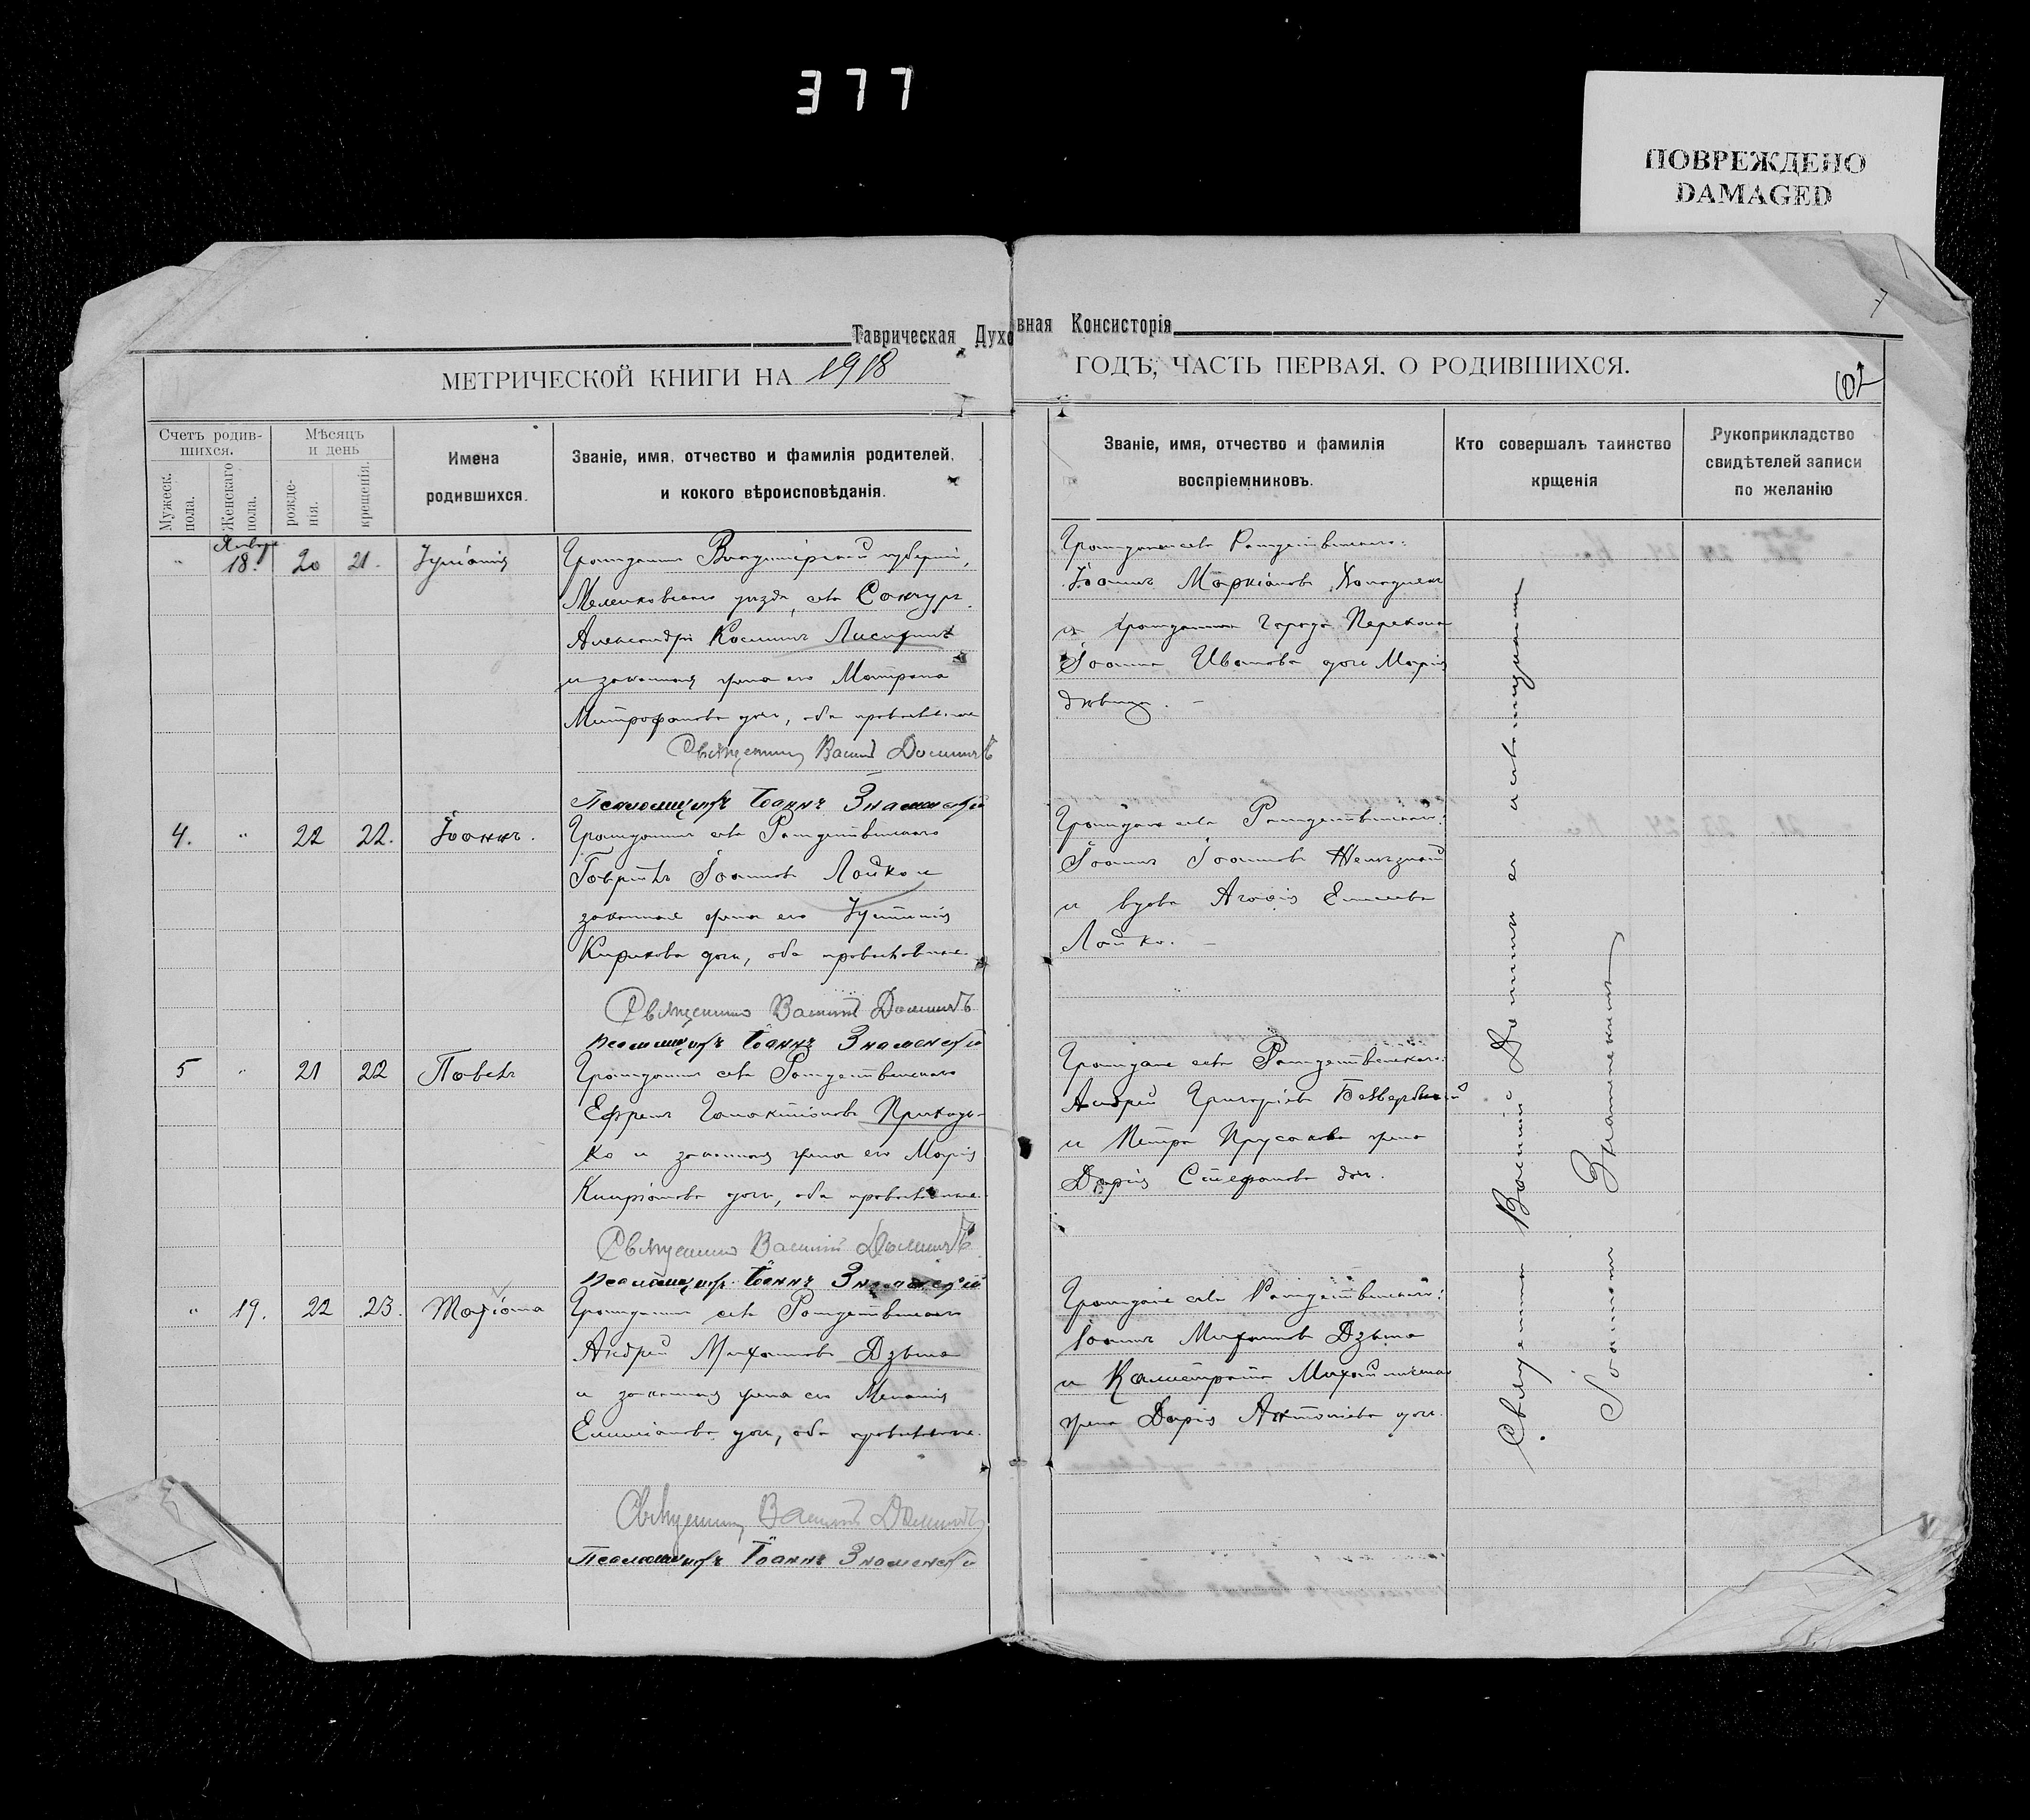 377
ПОВРЕЖДЕНО
DAMAGED
7
Таврическая Духовная Консисторія
МЕТРИЧЕСКОЙ КНИГИ НА 1918 ГОДЪ, ЧАСТЬ ПЕРВАЯ. О РОДИВШИХСЯ.
Счетъ родив-
шихся.
Мужеск.
пола.
Женскаго
пола.
Мѣсяцъ
и день
рожде-
нія.
крещенія.
Имена
родившихся.
Званіе, имя, отчество и фамилія родителей,
и кокого вѣроисповѣданія.
Званіе, имя, отчество и фамилія
воспріемниковъ.
Кто совершалъ таинство
крщенія
Рукоприкладство
свидѣтелей записи
по желанію
Января
" 18. 20 21. Іуліанія
Гражданинъ Владимірской губерніи,
Меленковскаго уѣзда, села
Александръ Косминъ
и законная жена его Матрона
Митрофанова дочь, оба православные
Священникъ Василій
Псаломщикъ Іоаннъ Знаменскій
Гражданинъ села Рождественскаго:
Іоаннъ Маркіановъ
и гражданина города Перекопа
Іоанна Иванова дочь Марія
дѣвица. –
4. " 22 22. Іоаннъ.
Гражданинъ села Рождественскаго
Гавріилъ Іоанновъ Лойко и
законная жена его Іустинія
Кирикова дочь, оба православные.
Священникъ Василій
Псаломщикъ Іоаннъ Знаменскій
Граждане села Рождественскаго:
Іоаннъ Іоанновъ
и вдова Агафія Елисеева
Лойко. –
5 " 21 22 Павелъ
Гражданинъ села Рождественскаго
Ефремъ Галактіоновъ Приходь-
ко и законная жена его Марія
Кипріанова дочь, оба православные.
Священникъ Василій
Псаломщикъ Іоаннъ Знаменскій
Граждане села Рождественскаго:
Андрей Григорьевъ
и Петра Прусакова жена
Дарія Стефанова доч.
" 19. 22 23. Маріана
Гражданинъ села Рождественскаго
Андрей Михаиловъ Дзюма
и законная жена его Меланія
Емиліанова дочь, оба православные.
Священникъ Василій
Псаломщикъ Іоаннъ Знаменскій
Граждане села Рождественскаго:
Іоаннъ Михаиловъ Дзюма
и Калистрата
жена Дарія Антоніева дочь.
Священникъ Василій
съ псаломщикомъ
Іоанномъ Знаменскимъ